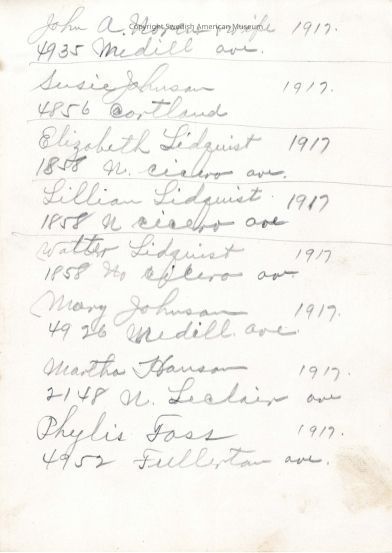 Copyright Swedish American Museum
John A. wife 1917.
4935 Medill ave.
Susie Johnson 1917.
4856 Cortland
Elizabeth Lidquist 1917
1858 N. cicero ave.
Lillian Lidquist 1917
1858 N cicero ave
Walter Lidquist 1917
1858 No cicero av
Mary Johnson 1917.
4926 Medill ave.
Martha Hanson 1917.
2148 N. Leclair ave
Phylis Foss 1917.
4952 Fullerton ave.